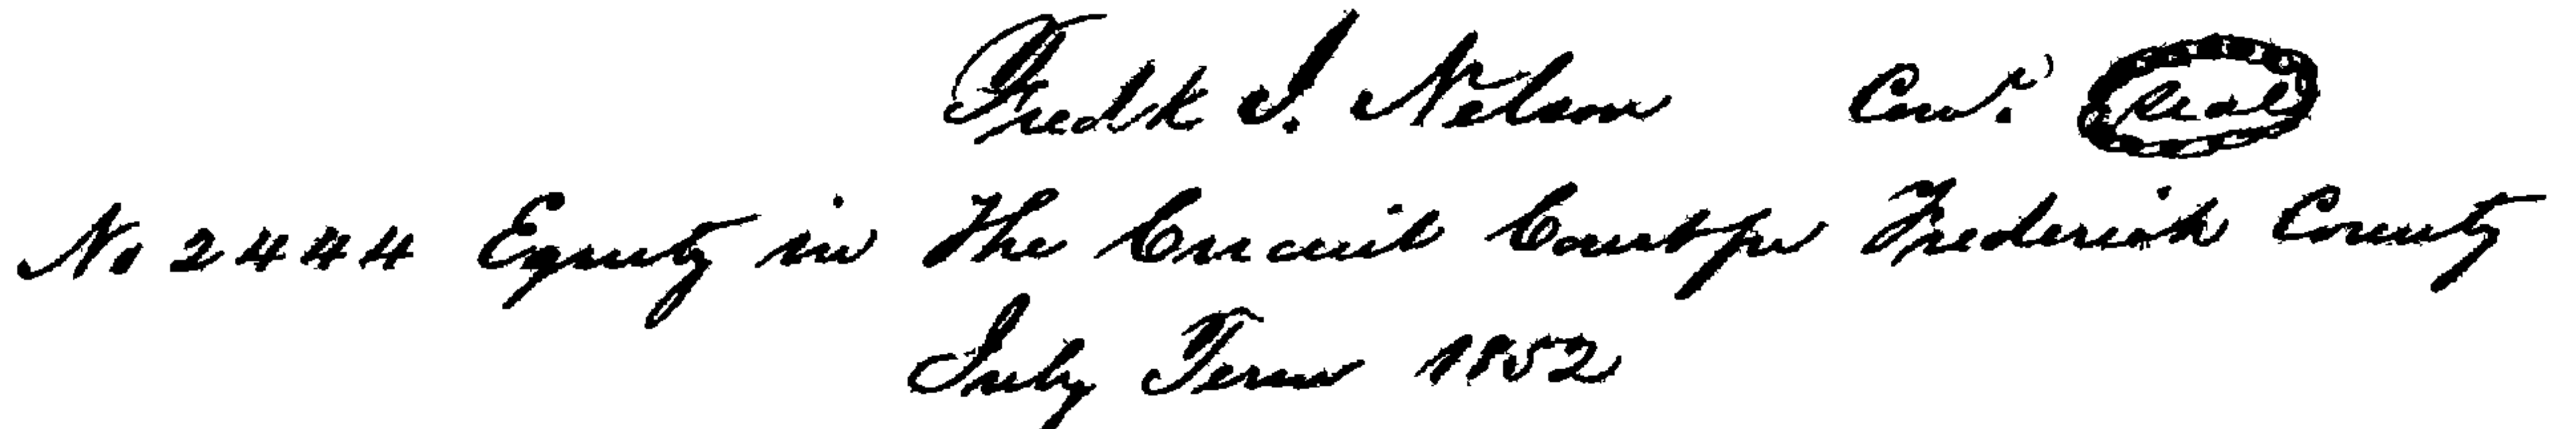 Fredk J. Nelson Comr. Seal
No 2444 Equity in The Circuit Court for Frederick County
July Term 1852